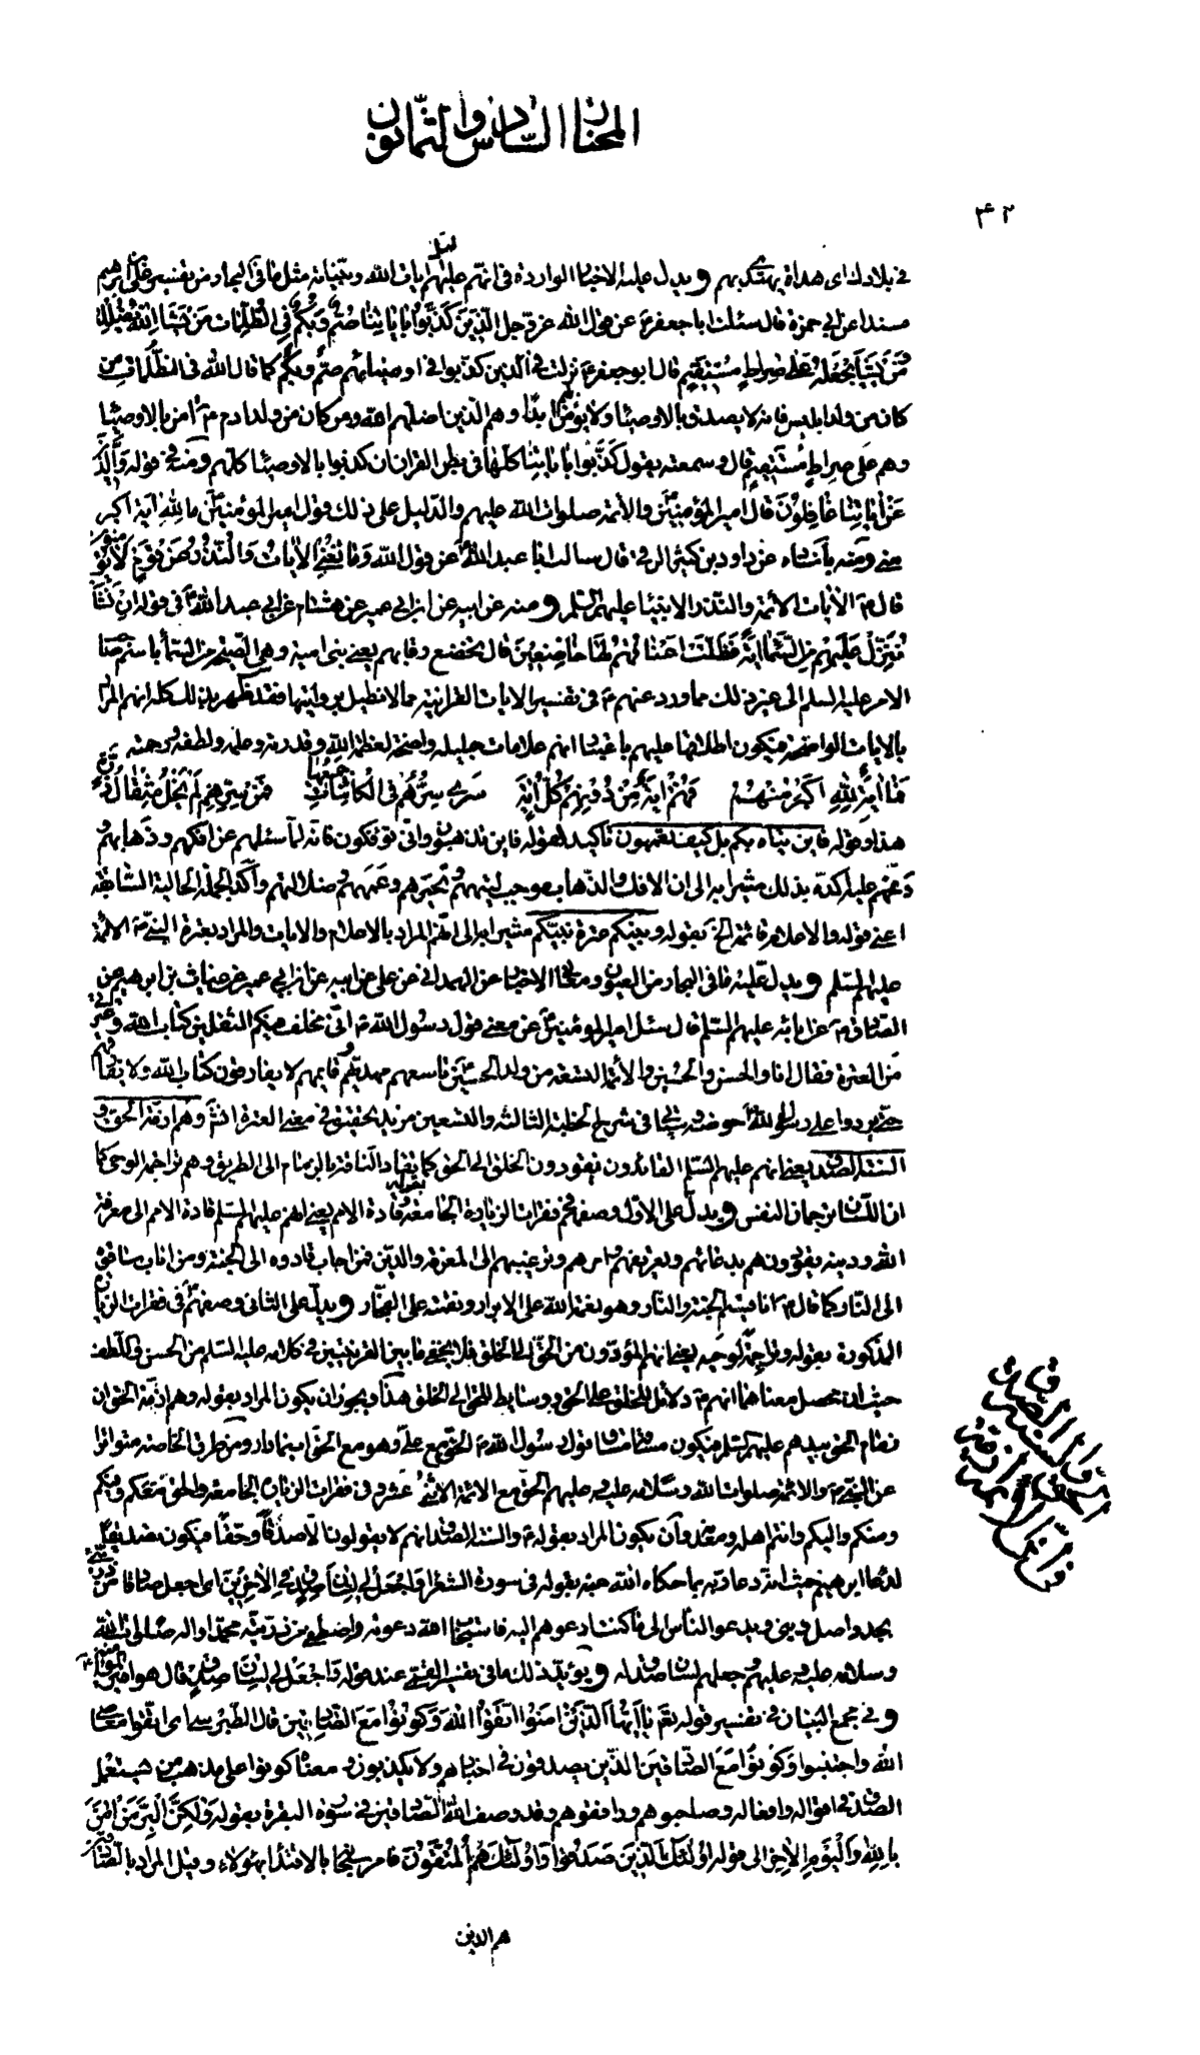 المختار السادس والثمانون
٤٢
في بلادك اى هداة يهتدى بهم ويدل عليه الاخبار الواردة في انهم عليهم السلم ايات الله وبيناته مثل ما في البحار من تفسير على بن ابرهيم
مسندا عن ابى حمزة قال سئلت ابا جعفر ع عن قول الله عز وجل الذين كذبوا باياتنا صم وبكم في الظلمات من يشاء الله يضلله
ومن يشأ يجعله على صراط مستقيم قال ابو جعفر ع نزلت في الذين كذبوا في اوصيائهم صم وبكم كما قال الله في الظلمات من
كان من ولد ابليس فانه لا يصدق بالاوصياء ولا يؤمن بهم ابدا وهم الذين اضلهم الله ومن كان من ولد ادم ع امن بالاوصياء
وهم على صراط مستقيم قال وسمعته يقول كذبوا باياتنا كلها في بطن القران ان كذبوا بالاوصياء كلهم ومنه في قوله والذين هم
عن اياتنا غافلون قال امير المؤمنين والأئمة صلوات الله عليهم والدليل على ذلك قول امير المؤمنين ع ما لله آية اكبر
منى ومنه باسناده عن داود بن كثير الرقى قال سالت ابا عبد الله ع عن قول الله وما تغنى الايات والنذر عن قوم لا يؤمنون
قال ع الايات الائمة والنذر الانبياء عليهم السلم ومنه عن ابيه عن ابن ابى عمير عن هشام عن ابى عبد الله ع في قوله ان نشأ
ننزل عليهم من السماء اية فظلت اعناقهم لها خاضعين قال تخضع رقابهم يعنى بنى امية وهى الصيحة من السماء باسم صاحب
الامر عليه السلم الى غير ذلك مما ورد عنهم ع في تفسير الايات القرانية مما لا نطيل بروايتها فقد ظهر بذلك كله انهم المراد
بالايات الواضحة فيكون اطلاقها عليهم باعتبار انهم علامات جليلة واضحة لعظمة الله وقدرته وعلمه ولطفه ورحمته
فما اية لله اكبر منهم فهم اية من دونهم كل اية سرى سرهم في الكائنات جميعها فمن سرهم لم يخل مثقال ذرة
هذا وقوله فاين يتاه بكم بل كيف تعمهون تأكيد لقوله فاين تذهبون وانى تؤفكون فانه لما سئلهم عن افكهم وذهابهم
ونحهم عليه اكده بذلك مشيرا به الى ان الافك والذهاب موجب لتيههم وتحيرهم وعمههم وضلالتهم واكد الجملة الحالية السابقة
اعنى قوله والاعلام قائمة الخ بقوله وبينكم عترة نبيكم مشيرا به الى انهم المراد بالاعلام والايات والمراد بعترة النبى ص الائمة
عليهم السلم ويدل عليه ما في البحار من العيون ومعانى الاخبار عن الهمدانى عن على عن ابيه عن ابن ابى عمير عن غياث بن ابرهيم عن
الصادق ع عن ابائه عليهم السلم قال سئل امير المؤمنين ع عن معنى قول رسول الله ص انى مخلف فيكم الثقلين كتاب الله وعترتى
من العترة فقال انا والحسن والحسين والائمة التسعة من ولد الحسين تاسعهم مهديهم وقائمهم لا يفارقون كتاب الله ولا يفارقهم
حتى يردوا على رسول الله حوضه وياتى في شرح الخطبة الثالثة والتسعين مزيد تحقيق في معنى العترة انشاء وهم ازمة الحق و
السنة الصدق يعنى انهم عليهم السلم القائدون يقودون الخلق الى الحق كما يقاد الناقة بالزمام الى الطريق وهم تراجمة الوحى كما
ان اللسان ترجمان النفس ويدل على الاول وصفهم في فقرات الزيارة الجامعة بقوله وقادة الامم يعنى انهم عليهم السلم قادة الامم الى معرفة
الله ودينه يقودونهم بدعائهم وتعريفهم وامرهم وترغيبهم الى المعرفة والدين فمن اجاب قادوه الى الجنة ومن اناب ساقوه
الى النار كما قال ع انا قسيم الجنة والنار وهو نعمة الله على الابرار ونقمته على الفجار ويدل على الثانى وصفهم في فقرات الزيارة
المذكورة بقوله وتراجمة لوحيه يعنى انهم المؤدون من الحق الى الخلق فلا يخفى ما بين القرينتين في كلامه عليه السلم من الحسن واللطف
حيث ان محصل معناهما انهم ع دلائل للخلق على الحق ووسايط للحق الى الخلق هذا ويجوز ان يكون المراد بقوله وهم ازمة الحق ان
زمام الحق بيدهم عليهم السلم فيكون مساقه مساق قول رسول الله ص الحق مع على وهو مع الحق اينما دار ومن طرق الخاصة متواترا
عن النبى ص والائمة صلوات الله وسلامه عليه وعليهم الحق مع الائمة الاثنى عشر وفي فقرات الزيارة الجامعة والحق معكم وفيكم
ومنكم واليكم وانتم اهله ومعدنه وان يكون المراد بقوله ع والسنة الصدق انهم لا يقولون الا صدقا وحقا فيكون تصديقا
لدعاء ابرهيم حيث انه دعا ربه بما حكاه الله عنه بقوله في سورة الشعراء واجعل لى لسان صدق في الآخرين اى اجعل صادقا من ذريتى
يجدد اصل دينى ويدعو الناس الى ما كنت ادعوهم اليه فاستجاب الله دعوته واصطفى من ذريته محمدا واله صلوات الله
وسلامه عليه وعليهم وجعلهم لسان صدق له ويؤيد ذلك ما في تفسير القمى عند قوله واجعل لى لسان صدق قال هو امير المؤمنين ع
وفي مجمع البيان في تفسير قوله تعم يا ايها الذين امنوا اتقوا الله وكونوا مع الصادقين قال الطبرسى اى اتقوا معاصى
الله واجتنبوا وكونوا مع الصادقين الذين يصدقون في اخبارهم ولا يكذبون ومعناه كونوا على مذهب من يستعمل
الصدق في اقواله وافعاله وصاحبوهم ورافقوهم وقد وصف الله الصادقين في سورة البقرة بقوله ولكن البر من امن
بالله واليوم الاخر الى قوله اولئك الذين صدقوا واولئك هم المتقون فامر سبحانه بالاقتداء بهؤلاء وقيل المراد بالصادقين
هم الذين